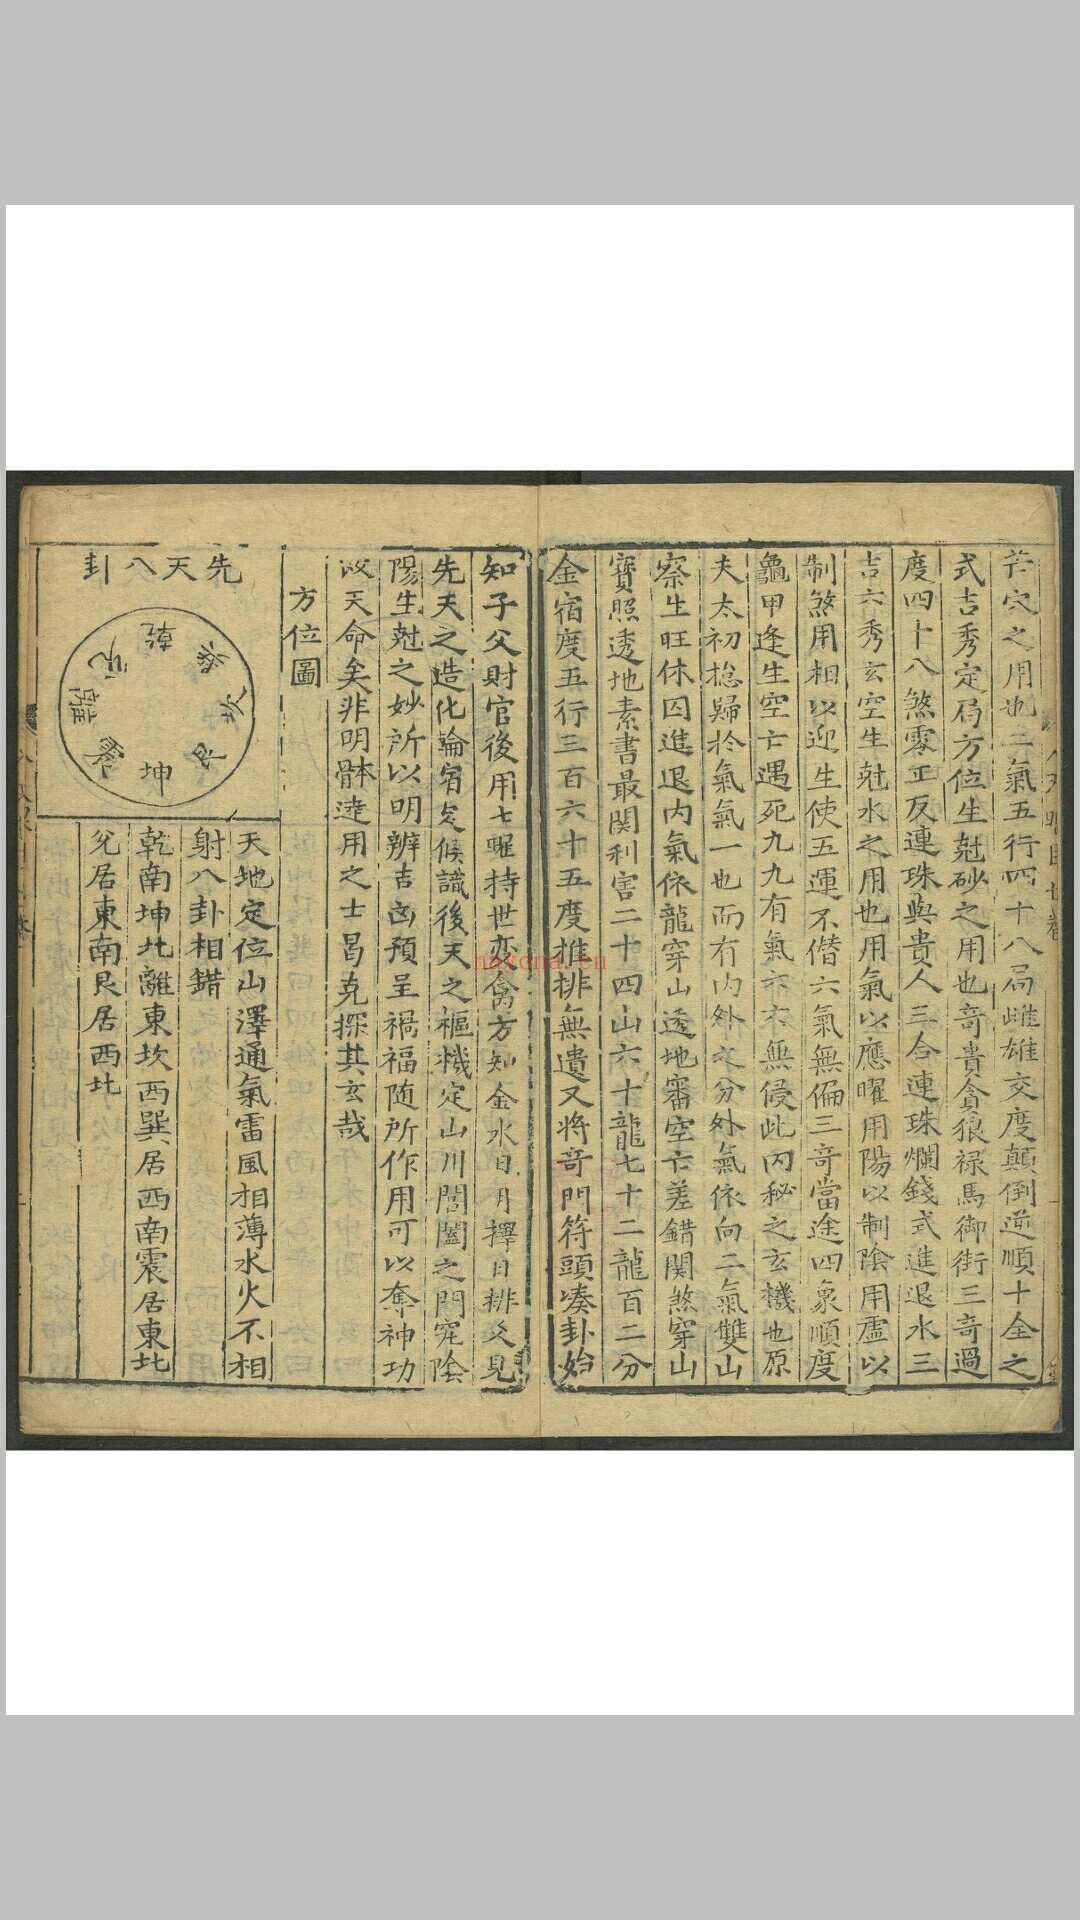 穴之用也二氣五行四十八局雌雄交度顛倒逆順十全之
式吉秀定局方位生尅砂之用也奇貴貪狼禄馬御街三奇過
度四十八煞零正反連珠與貴人三合連珠爛錢式進退水三
吉六秀玄空生尅水之用也用氣以應曜用陽以制陰用虛以
制煞用相以迎生使五運不僭六氣無偏三奇當途四象順度
龜甲逢生空亡遇死九九有氣 無侵此内秘之玄機也原
夫太初捴歸扵氣氣一也而有内外之分外氣依向二氣雙山
察生旺休囚進退内氣依龍穿山透地審空亡差錯関煞穿山
寶照透地素書最関利害二十四山六十龍七十二龍百二分
金宿度五行三百六十五度推排無遺又將奇門符頭凑卦始
知子父財官後用七曜持世変禽方知金水日月擇日排爻見
先天之造化輪宿定候識後天之樞機定山川闔闢之門究陰
陽生尅之妙所以明辦吉凶預呈禍福随所作用可以奪神功
改天命矣非明體達用之士曷克探其玄哉
方位圖
先天八卦
乾
兌
離
坤
天地定位山澤通氣雷風相薄水火不相
射八卦相錯
乾南坤北離東坎西巽居西南震居東北
兌居東南艮居西北
nayona.cn